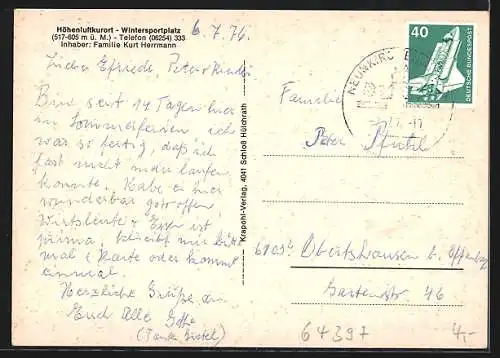 Höhenluftkurort - Wintersportplatz
(517-605 m ü. M.) - Telefon (06254) 333
Inhaber: Familie Kurt Herrmann
6.7.76
Liebe Elfriede, Peter + Kinder
Bin seit 14 Tagen hier
im Sommerferien ich
war so fertig, daß ich
fast nicht mehr laufen
konnte. Habe es hier
wunderbar getroffen
Wirtsleute + Essen ist
prima, schreibt mir bitte
mal e Karte oder kommt
einmal.
Herzliche Grüße an
Euch Alle
(Tante
Krapohl-Verlag, 4041 Schloß Hülchrath
40
DEUTSCHE BUNDESPOST
NEUNKIRCHEN
Familie
Peter
Obertshausen b. Offenbach
Gartenstr. 46
64397
4,-